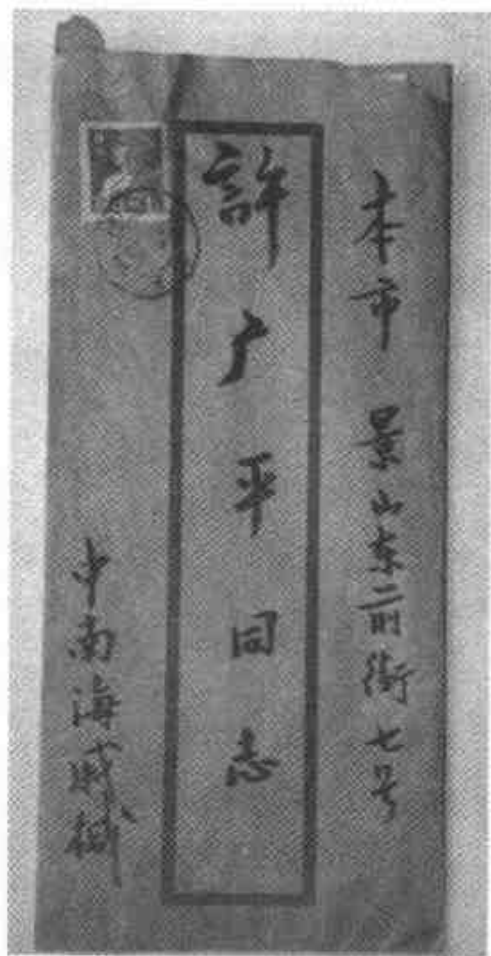 本市 景山东前街七号
許广平同志
中南海戚缄